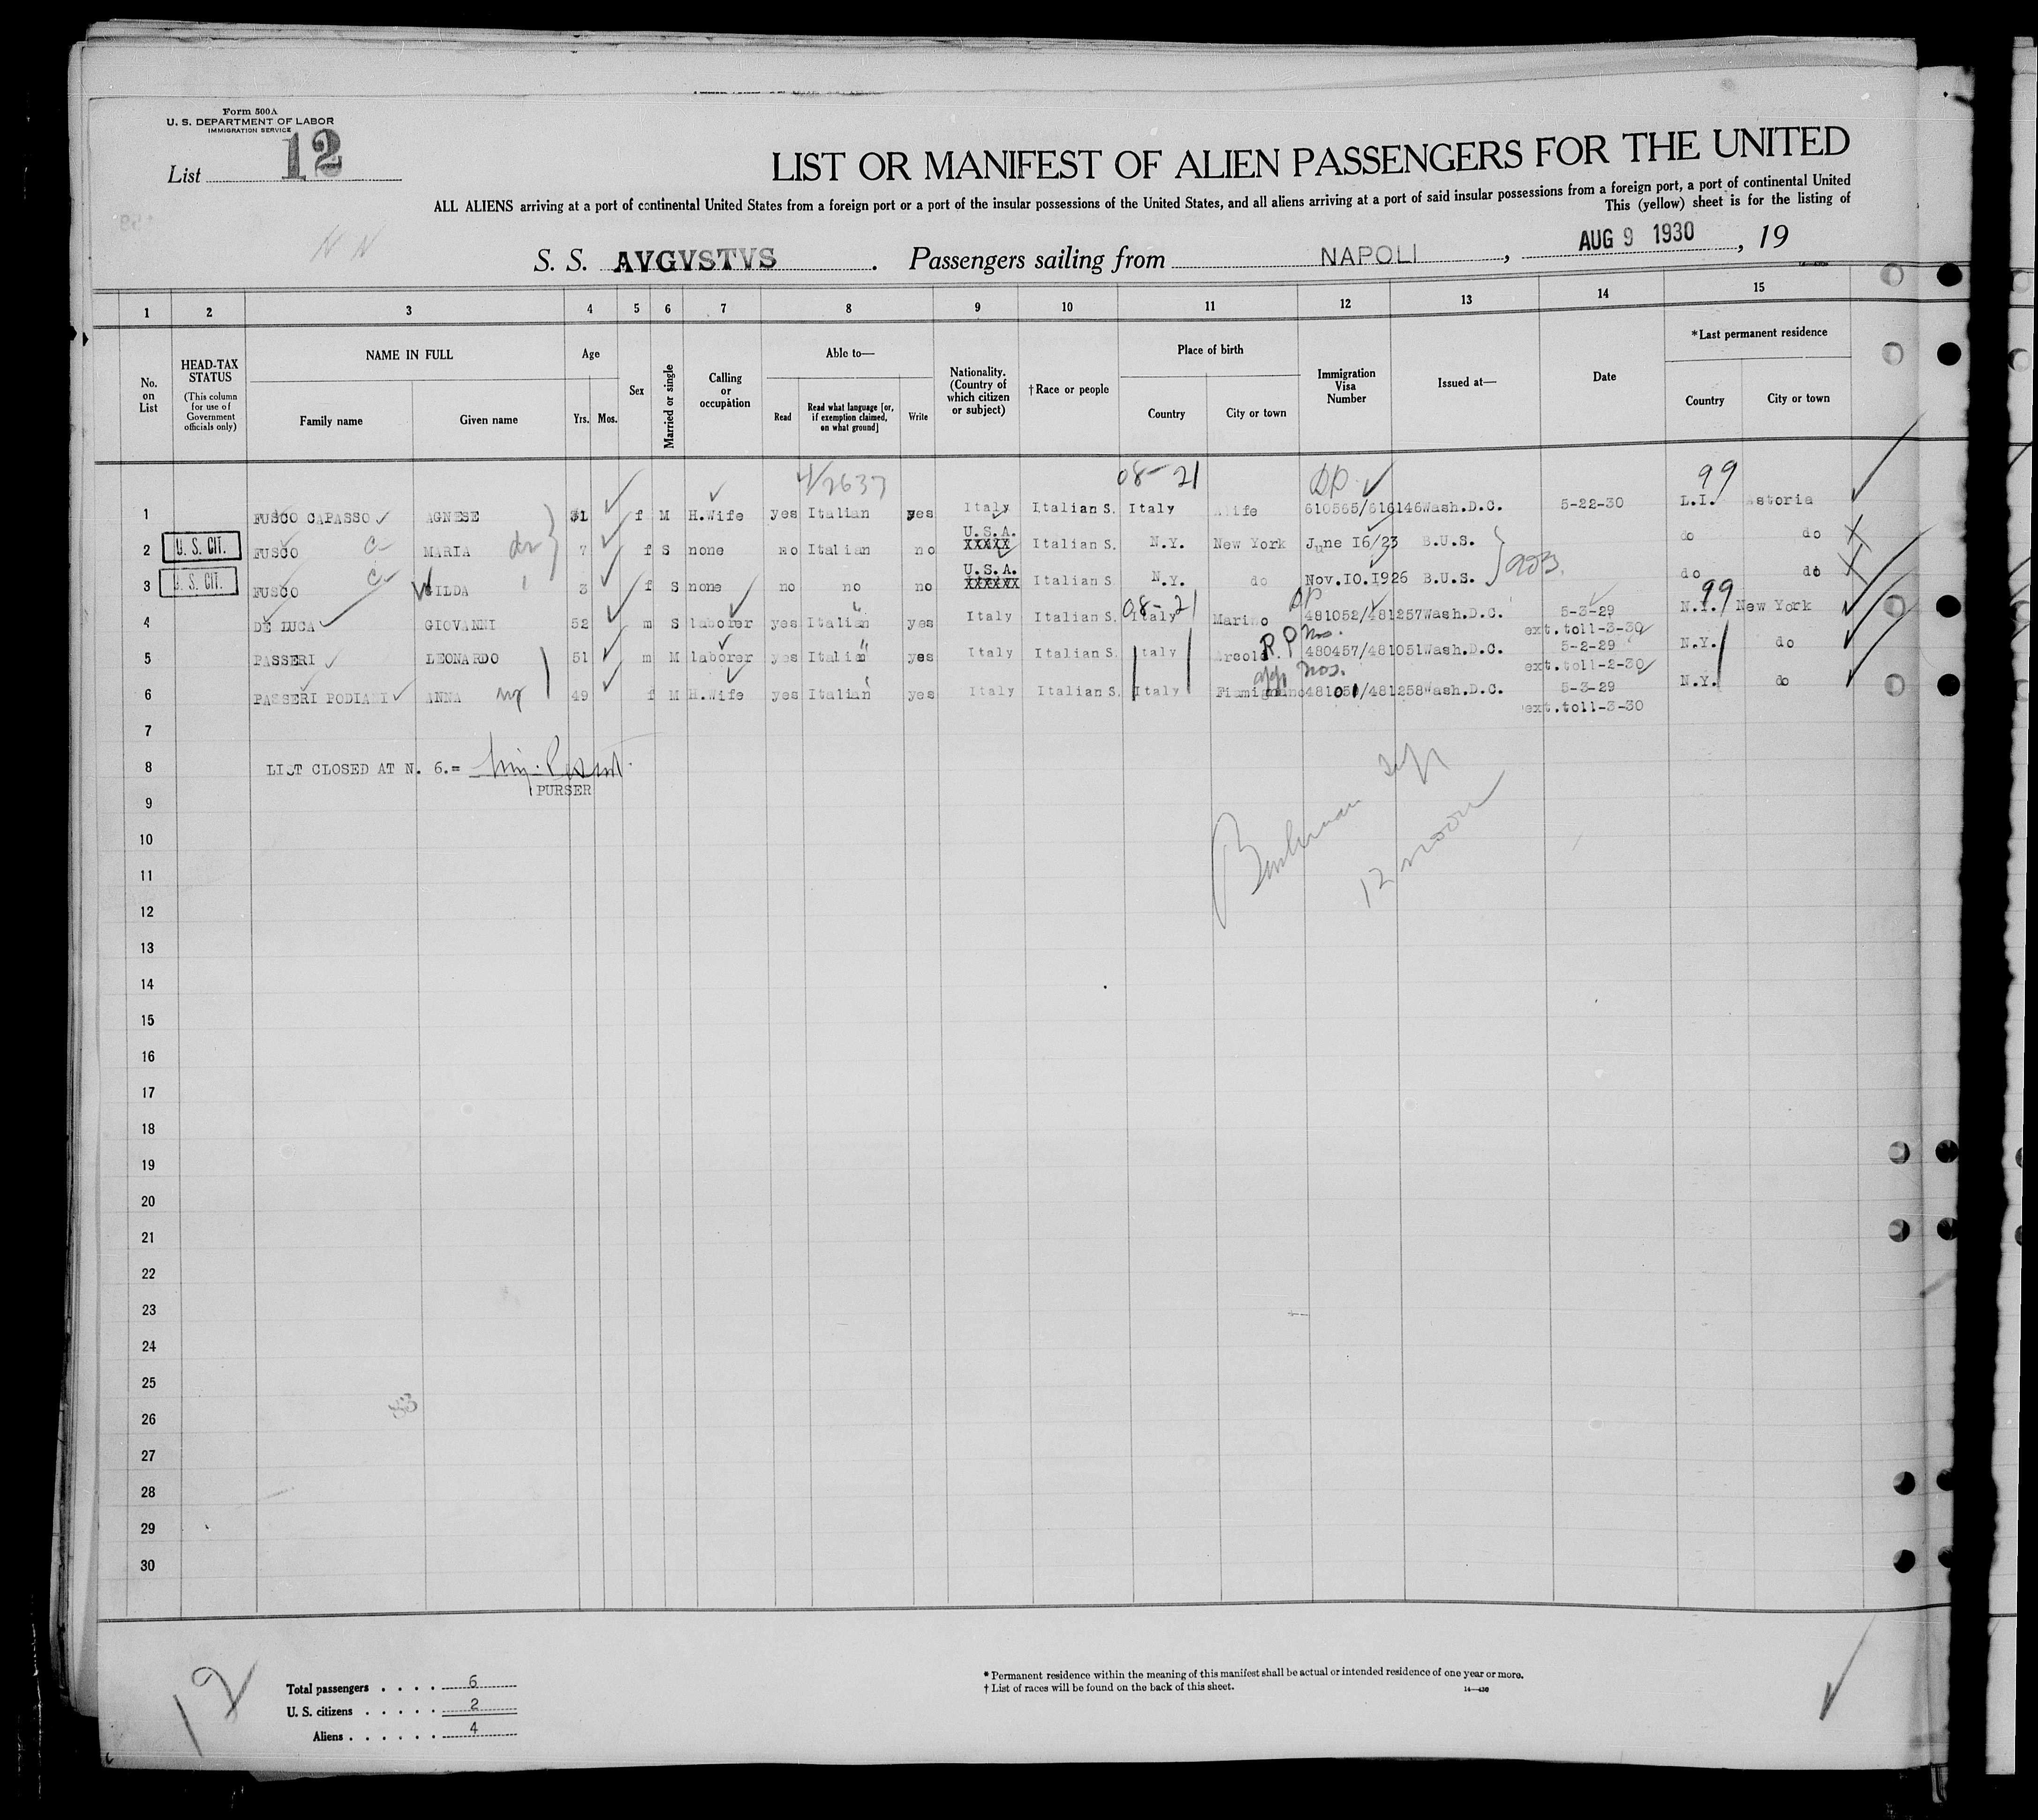 Form 500A
U. S. DEPARTMENT OF LABOR
IMMIGRATION SERVICE
List 12
LIST OR MANIFEST OF ALIEN PASSENGERS FOR THE UNITED
ALL ALIENS arriving at a port of continental United States from a foreign port or a port of the insular possessions of the United States, and all aliens arriving at a port of said insular possessions from a foreign port, a port of continental United
This (yellow) sheet is for the listing of
N N
S. S. AVGVSTVS. Passengers sailing from NAPOLI, AUG 9 1930, 19
1 2 3 4 5 6 7 8 9 10 11 12 13 14 15
No. on List
HEAD-TAX STATUS
(This column for use of Government officials only)
NAME IN FULL
Family name Given name
Age
Yrs. Mos.
Sex
Married or single
Calling or occupation
Able to—
Read
Read what language [or, if exemption claimed, on what ground]
Write
Nationality. (Country of which citizen or subject)
†Race or people
Place of birth
Country City or town
Immigration Visa Number
Issued at—
Date
*Last permanent residence
Country City or town
4/2637 08-21 99
1 FUSCO CAPASSO AGNESE 31 f M H.Wife yes Italian yes Italy Italian S. Italy Alife 610565/616146 Wash.D.C. 5-22-30 L.I. Astoria
2 U. S. CIT. FUSCO MARIA 7 f S none no Italian no U.S.A. XXXXX Italian S. N.Y. New York June 16/23 B.U.S. do do
3 U. S. CIT. FUSCO GILDA 3 f S none no no no U.S.A. XXXXXX Italian S. N.Y. do Nov.10.1926 B.U.S. do do
08-21 99
4 DE LUCA GIOVANNI 52 m S laborer yes Italian yes Italy Italian S. Italy Marino 481052/481257 Wash.D.C. 5-3-29 N.Y. New York
ext.to11-3-30
5 PASSERI LEONARDO 51 m M laborer yes Italian yes Italy Italian S. Italy 480457/481051 Wash.D.C. 5-2-29 N.Y. do
ext.to11-2-30
6 PASSERI PODIANI ANNA 49 f M H.Wife yes Italian yes Italy Italian S. Italy Fiamignano 481051/481258 Wash.D.C. 5-3-29 N.Y. do
ext.to11-3-30
7
8 LIST CLOSED AT N. 6.=
PURSER
9
10
11
12 noon
12
13
14
15
16
17
18
19
20
21
22
23
24
25
26
27
28
29
30
12
Total passengers . . . . 6
U. S. citizens . . . . . 2
Aliens . . . . . . 4
* Permanent residence within the meaning of this manifest shall be actual or intended residence of one year or more.
† List of races will be found on the back of this sheet.
14—430